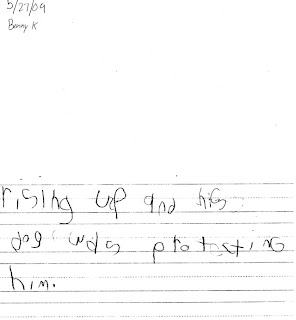 5/27/09
Benny K
rising up and his
dog was protasting
him.